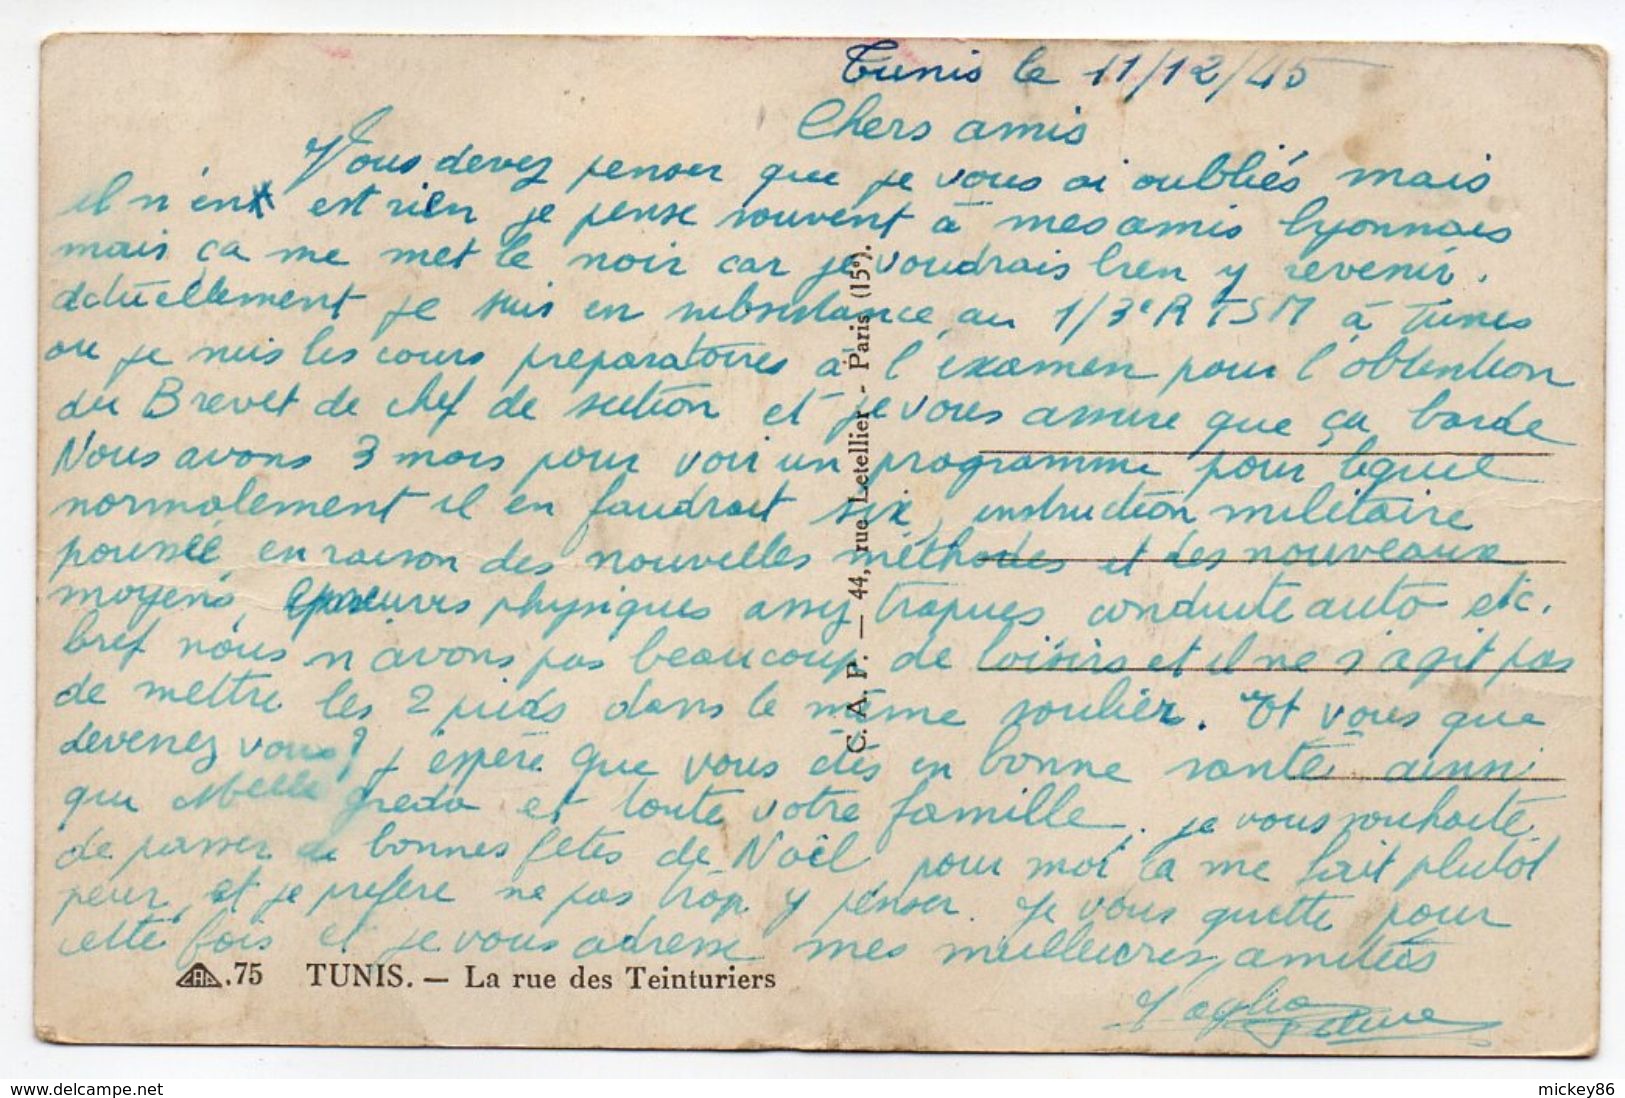 Tunis le 11/12/45
Chers amis
Vous devez penser que je vous ai oubliés mais
il n'en est rien je pense souvent à mes amis lyonnais
mais ça me met le noir car je voudrais bien y revenir.
actuellement je suis en subsistance au 1/3e R T S M à Tunis
ou je suis les cours preparatoires à l'examen pour l'obtention
du Brevet de chef de section et je vous assure que ça barde
Nous avons 3 mois pour voir un programme pour lequel
normalement il en faudrait six, instruction militaire
poussée en raison des nouvelles méthodes et des nouveaux
moyens, épreuves physiques assez trapues conduite auto etc.
bref nous n'avons pas beaucoup de loisirs et il ne s'agit pas
de mettre les 2 pieds dans le même soulier. Et vous que
devenez vous? j'espère que vous êtes en bonne santé ainsi
que Melle Greda et toute votre famille. je vous souhaite
de passer de bonnes fetes de Noël pour moi ça me fait plutôt
peur, et je prefere ne pas trop y penser. Je vous quitte pour
cette fois et je vous adresse mes meilleures amitiés
C. A. P. — 44, rue Letellier - Paris (15e).
CAP .75 TUNIS. — La rue des Teinturiers
delcampe.net
mickey86